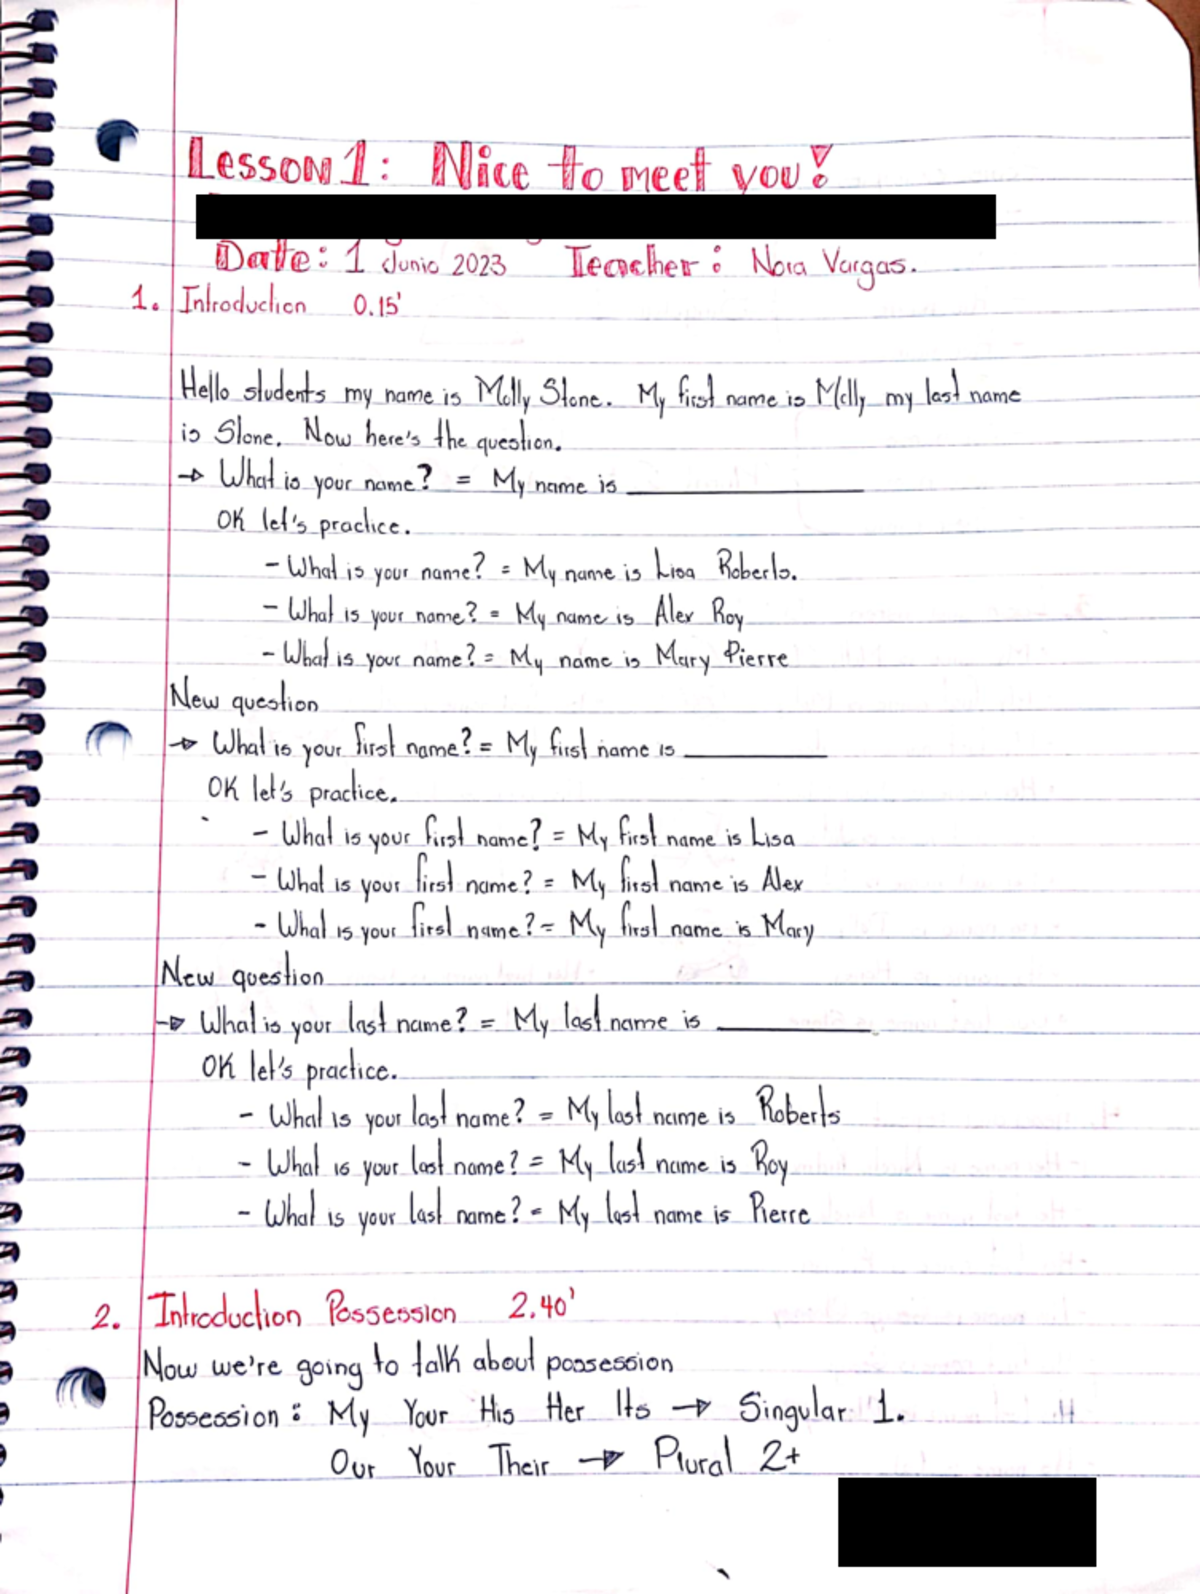 Lesson 1: Nice to meet you!
Date: 1 Junio 2023 Teacher: Nora Vargas.
1. Introduction 0.15'
Hello students my name is Molly Stone. My first name is Molly my last name
is Stone. Now here's the question.
→ What is your name? = My name is ___________
OK let's practice.
- What is your name? = My name is Lisa Roberts.
- What is your name? = My name is Alex Roy
- What is your name? = My name is Mary Pierre
New question
→ What is your first name? = My first name is ___________
OK let's practice.
- What is your first name? = My first name is Lisa
- What is your first name? = My first name is Alex
- What is your first name? = My first name is Mary
New question
→ What is your last name? = My last name is ___________
OK let's practice.
- What is your last name? = My last name is Roberts
- What is your last name? = My last name is Roy
- What is your last name? = My last name is Pierre
2. Introduction Possession 2.40'
Now we're going to talk about possession
Possession: My Your His Her Its → Singular 1.
Our Your Their → Plural 2+